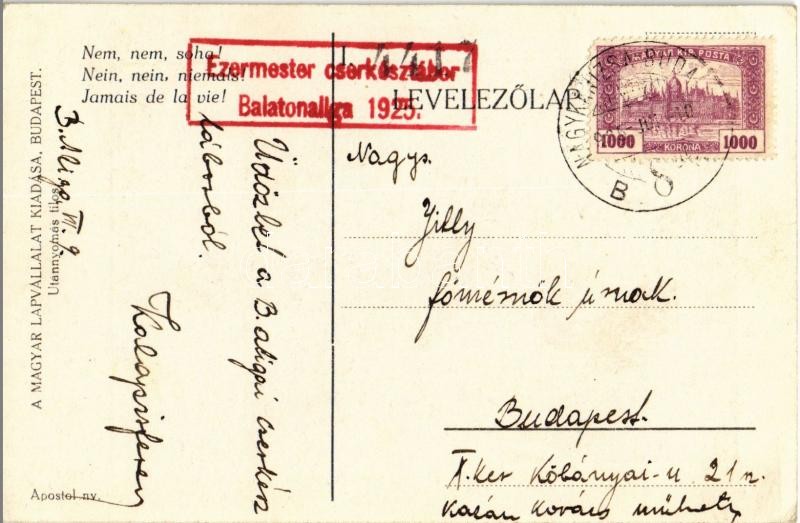 Nem, nem, soha!
Nein, nein, niemals!
Jamais de la vie!
Ezermester cserkésztábor
Balatonaliga 1925.
LEVELEZŐLAP
MAGYAR KIR. POSTA
1000 1000
KORONA
B
A MAGYAR LAPVÁLLALAT KIADÁSA, BUDAPEST.
Utánnyomás tilos.
B. Aliga VII. 9.
Üdözlet a B. aligai cserkész
táborból.
Nagys.
főmérnök úrnak.
Budapest.
X. ker Kőbányai-u. 21
Kazán Kovács műhely
Apostol ny.